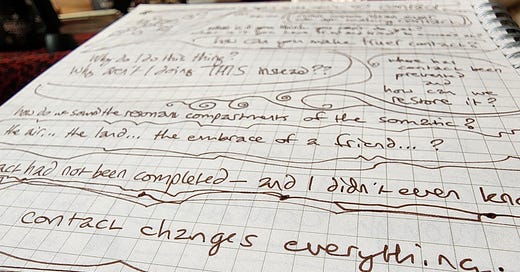 how can you make truer contact?
Why do I do this thing?
Why aren't I doing THIS instead??
where has
contact been
prevented
and
how can we
restore it?
how do we sound the resonant compartments of the somatic?
the air... the land... the embrace of a friend...?
act had not been completed – and I didn't even
contact changes everything...